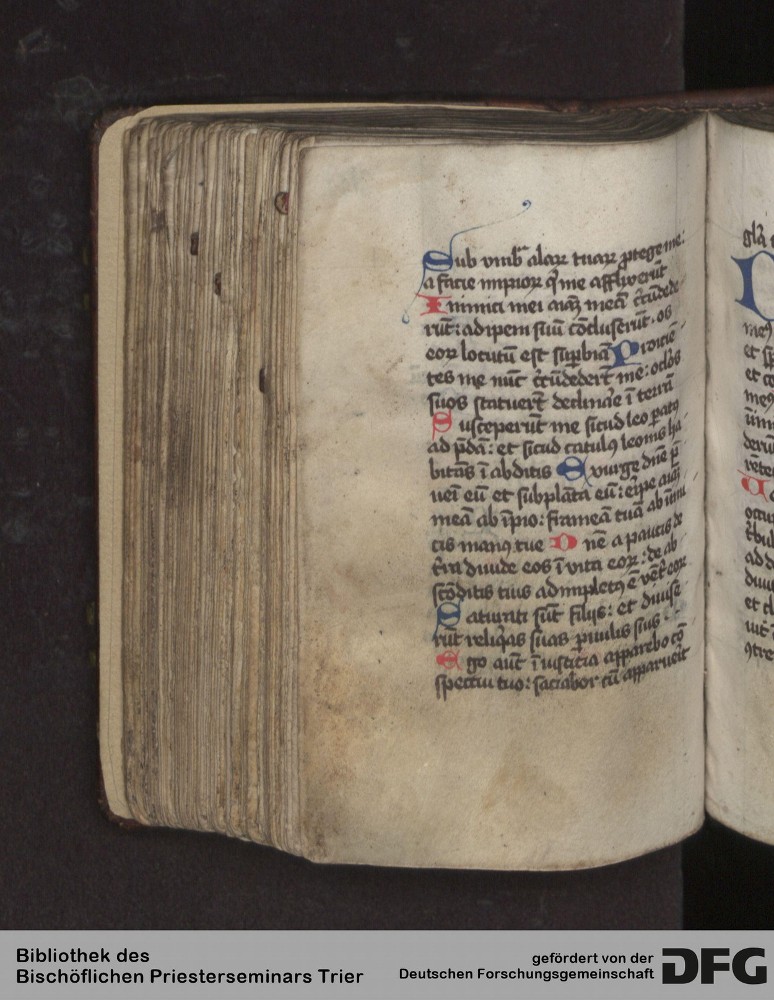 Sub vmbᵃ alaꝝ tuaꝝ ꝓtege me:
a facie impioꝝ qͥ me afflixerūt
Inimici mei aīaꝫ meā c̄cūdede
rūt: adipem suū cōcluserūt. os
eoꝝ locutū est suꝑbiā Proicien
tes me nunc c̄cūdedert̄ me: oc̄los
suos statuert̄ declinaͬe ī terrā
Susceperūt me sicud leo ꝑatꝰ
ad p̄dā: et sicud catulꝰ leonis ha
bitās ī abditis Exurge dn̄e p̄
ueī eū et subplāta eū: eripe aīaꝫ
meā ab īpio: frameā tuā ab īīmi
cis manꝰ tue Dn̄e a paucis de
t̄ra diuide eos ī vita eoꝝ: de ab
scōditis tuis adimpletꝰ ē vēt̄ eoꝝ
Saturati sūt filijs: et diuise
rūt reliqͥas suas ꝑuulis suis
Ego aūt ī iusticia apparebo cō
spectui tuo: saciabor cū apparueīt
gl̄a
Bibliothek des
Bischöflichen Priesterseminars Trier
gefördert von der
Deutschen Forschungsgemeinschaft
DFG